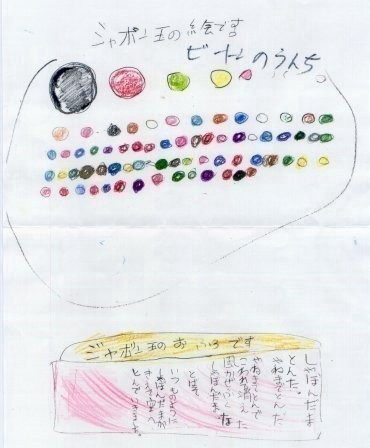 シャボン玉の絵です
ビーナのうんち。
シャボン玉のおふろです
しゃぼんだま
とんだ。
やねまでとんだ
やねまでとんで
こわれて消えた
風々ふくな
しゃぼんだま。
とばそ
いつものように
しゃぼんだまが
きえて空へ
とんでいきます。